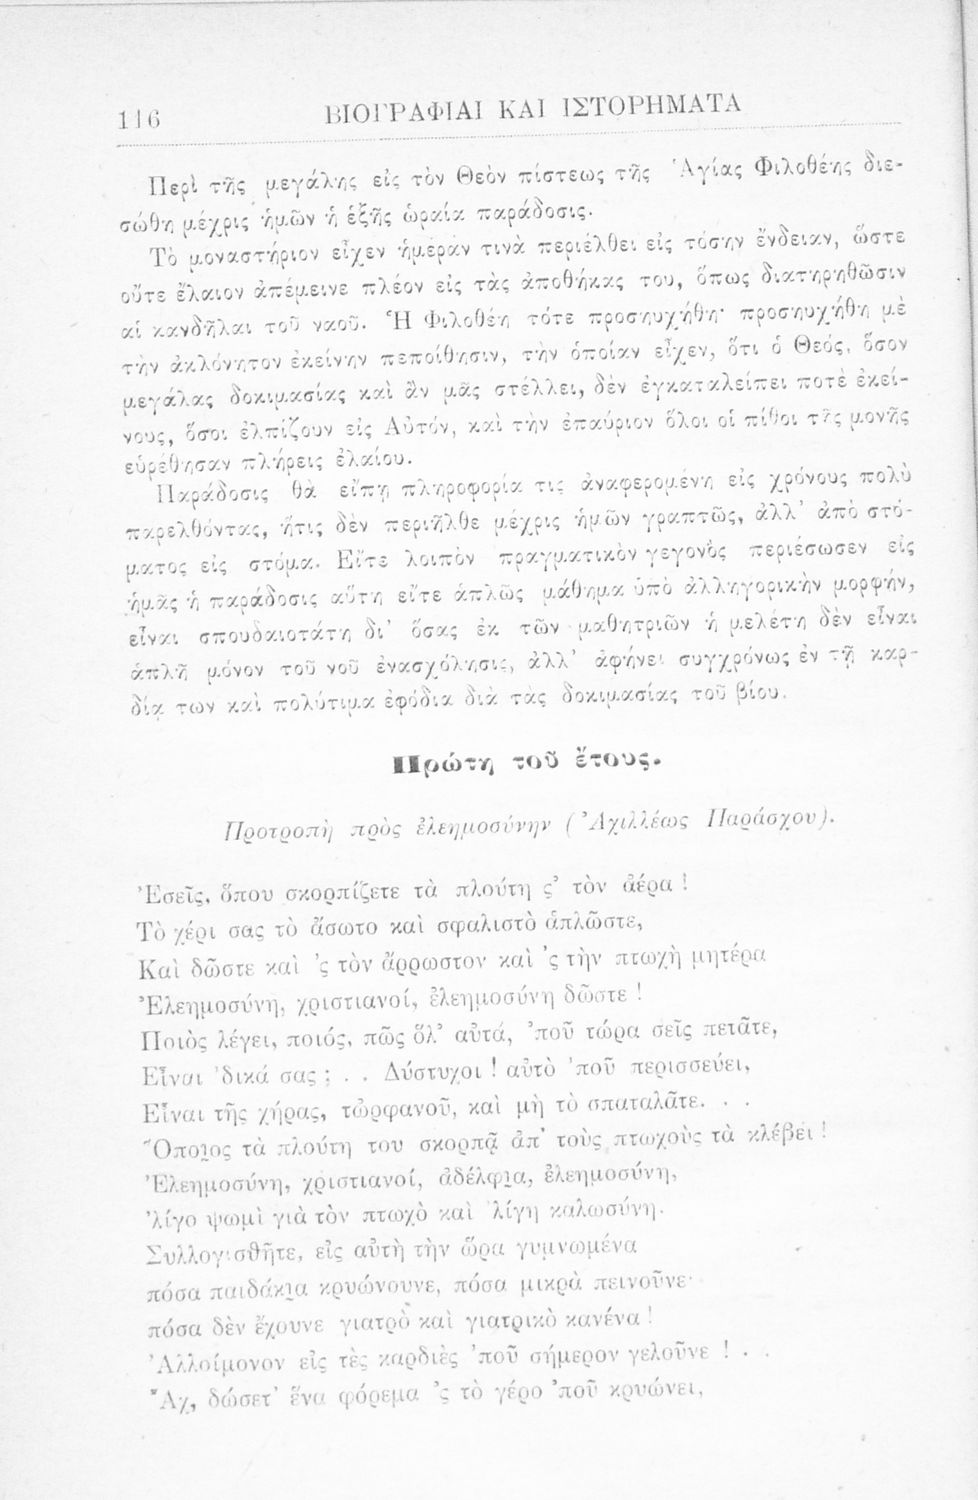 116 ΒΙΟΓΡΑΦΙΑΙ ΚΑΙ ΙΣΤΟΡΗΜΑΤΑ
Περὶ τῆς μεγάλης εἰς τὸν Θεὸν πίστεως τῆς Ἁγίας Φιλοθέης διε-
σώθη μέχρις ἡμῶν ἡ ἑξῆς ὡραία παράδοσις.
Τὸ μοναστήριον εἶχεν ἡμέραν τινὰ περιέλθει εἰς τόσην ἔνδειαν, ὥστε
οὔτε ἔλαιον ἀπέμεινε πλέον εἰς τὰς ἀποθήκας του, ὅπως διατηρηθῶσιν
αἱ κανδῆλαι τοῦ ναοῦ. Ἡ Φιλοθέη τότε προσηυχήθη· προσηυχήθη μὲ
τὴν ἀκλόνητον ἐκείνην πεποίθησιν, τὴν ὁποίαν εἶχεν, ὅτι ὁ Θεός, ὅσον
μεγάλας δοκιμασίας καὶ ἂν μᾶς στέλλει, δὲν ἐγκαταλείπει ποτὲ ἐκεί-
νους, ὅσοι ἐλπίζουν εἰς Αὐτόν, καὶ τὴν ἐπαύριον ὅλοι οἱ πίθοι τῆς μονῆς
εὑρέθησαν πλήρεις ἐλαίου.
Παράδοσις θὰ εἴπῃ πληροφορία τις ἀναφερομένη εἰς χρόνους πολὺ
παρελθόντας, ἥτις δὲν περιῆλθε μέχρις ἡμῶν γραπτῶς, ἀλλ' ἀπὸ στό-
ματος εἰς στόμα. Εἴτε λοιπὸν πραγματικὸν γεγονὸς περιέσωσεν εἰς
ἡμᾶς ἡ παράδοσις αὕτη εἴτε ἁπλῶς μάθημα ὑπὸ ἀλληγορικὴν μορφήν,
εἶναι σπουδαιοτάτη δι' ὅσας ἐκ τῶν μαθητριῶν ἡ μελέτη δὲν εἶναι
ἁπλῆ μόνον τοῦ νοῦ ἐνασχόλησις, ἀλλ' ἀφήνει συγχρόνως ἐν τῇ καρ-
δίᾳ των καὶ πολύτιμα ἐφόδια διὰ τὰς δοκιμασίας τοῦ βίου.
Πρώτη τοῦ ἔτους.
Προτροπὴ πρὸς ἐλεημοσύνην (Ἀχιλλέως Παράσχου).
Ἐσεῖς, ὅπου σκορπίζετε τὰ πλούτη ς' τὸν ἀέρα!
Τὸ χέρι σας τὸ ἄσωτο καὶ σφαλιστὸ ἁπλῶστε,
Καὶ δῶστε καὶ 'ς τὸν ἄρρωστον καὶ 'ς τὴν πτωχὴ μητέρα
Ἐλεημοσύνη, χριστιανοί, ἐλεημοσύνη δῶστε!
Ποιὸς λέγει, ποιός, πῶς ὅλ' αὐτά, 'ποῦ τώρα σεῖς πετᾶτε,
Εἶναι 'δικά σας; . . Δύστυχοι! αὐτὸ 'ποῦ περισσεύει,
Εἶναι τῆς χήρας, τὠρφανοῦ, καὶ μὴ τὸ σπαταλᾶτε. . .
Ὅποιος τὰ πλούτη του σκορπᾷ ἀπ' τοὺς πτωχοὺς τὰ κλέβει!
Ἐλεημοσύνη, χριστιανοί, ἀδέλφια, ἐλεημοσύνη,
'λίγο ψωμὶ γιὰ τὸν πτωχὸ καὶ λίγη καλωσύνη.
Συλλογισθῆτε, εἰς αὐτὴ τὴν ὥρα γυμνωμένα
πόσα παιδάκια κρυώνουνε, πόσα μικρὰ πεινοῦνε·
πόσα δὲν ἔχουνε γιατρὸ καὶ γιατρικὸ κανένα!
Ἀλλοίμονον εἰς τὲς καρδιὲς 'ποῦ σήμερον γελοῦνε! . .
Ἄχ, δώσετ' ἕνα φόρεμα 'ς τὸ γέρο 'ποῦ κρυώνει,